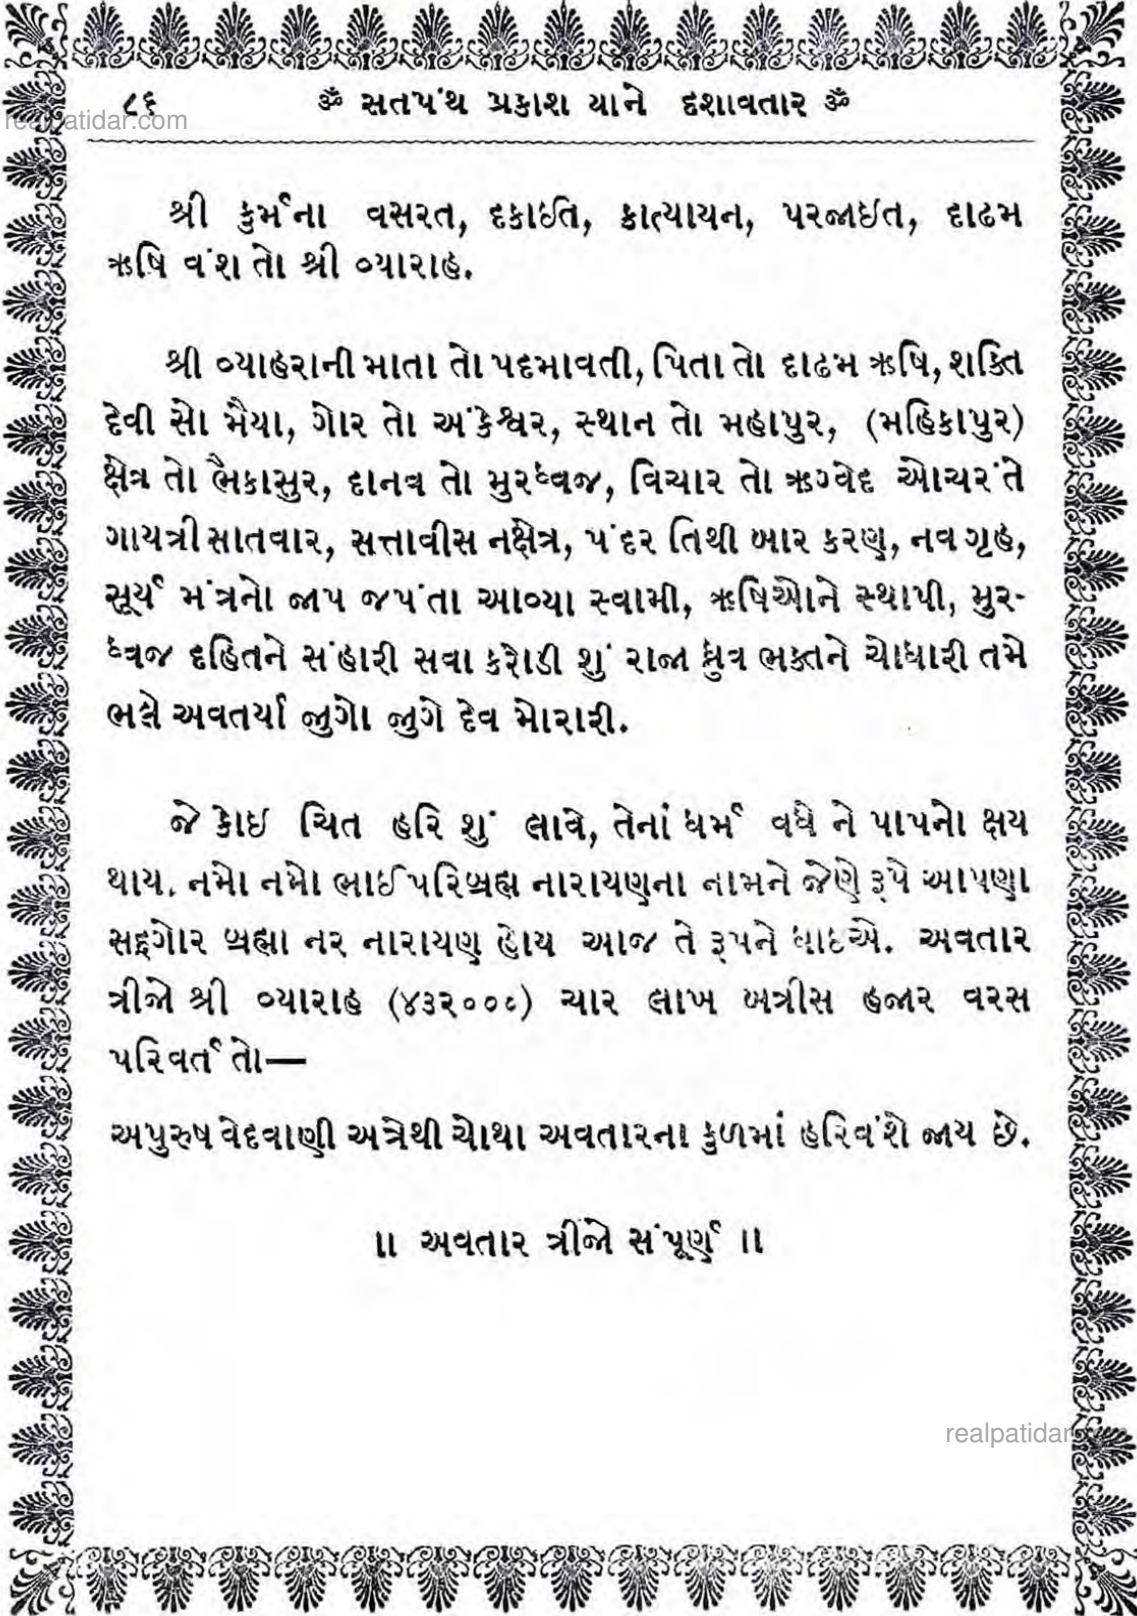 ૮૬ ૐ સતપંથ પ્રકાશ યાને દશાવતાર ૐ
realpatidar.com
શ્રી કુર્મના વસરત, દકાઈતિ, કાત્યાયન, પરજાઇત, દાઢમ
ઋષિ વંશ તો શ્રી વ્યારાહ.
શ્રી વ્યાહરાની માતા તો પદમાવતી, પિતા તો દાઢમ ઋષિ, શક્તિ
દેવી સો મૈયા, ગોર તો અંકેશ્વર, સ્થાન તો મહાપુર, (મહિકાપુર)
ક્ષેત્ર તો ભૈકાસુર, દાનવ તો મુરધ્વજ, વિચાર તો ઋગ્વેદ ઓચરંતે
ગાયત્રી સાતવાર, સત્તાવીસ નક્ષેત્ર, પંદર તિથી બાર કરણ, નવ ગૃહ,
સૂર્ય મંત્રનો જાપ જપંતા આવ્યા સ્વામી, ઋષિઓને સ્થાપી, મુર-
ધ્વજ દહિતને સંહારી સવા કરોડી શું રાજા ધ્રુવ ભક્તને ચોધારી તમે
ભલે અવતર્યા જુગો જુગે દેવ મોરારી.
જે કોઇ ચિત હરિ શું લાવે, તેનાં ધર્મ વધે ને પાપનો ક્ષય
થાય. નમો નમો ભાઈ પરિબ્રહ્મ નારાયણના નામને જેણે રૂપે આપણા
સદ્દગોર બ્રહ્મા નર નારાયણ હોય આજ તે રૂપને ધાઇએ. અવતાર
ત્રીજો શ્રી વ્યારાહ (૪૩૨૦૦૦) ચાર લાખ બત્રીસ હજાર વરસ
પરિવર્ત તો—
અપુરુષ વેદવાણી અત્રેથી ચોથા અવતારના કુળમાં હરિવંશે જાય છે.
॥ અવતાર ત્રીજો સંપૂર્ણ ॥
realpatidar.com